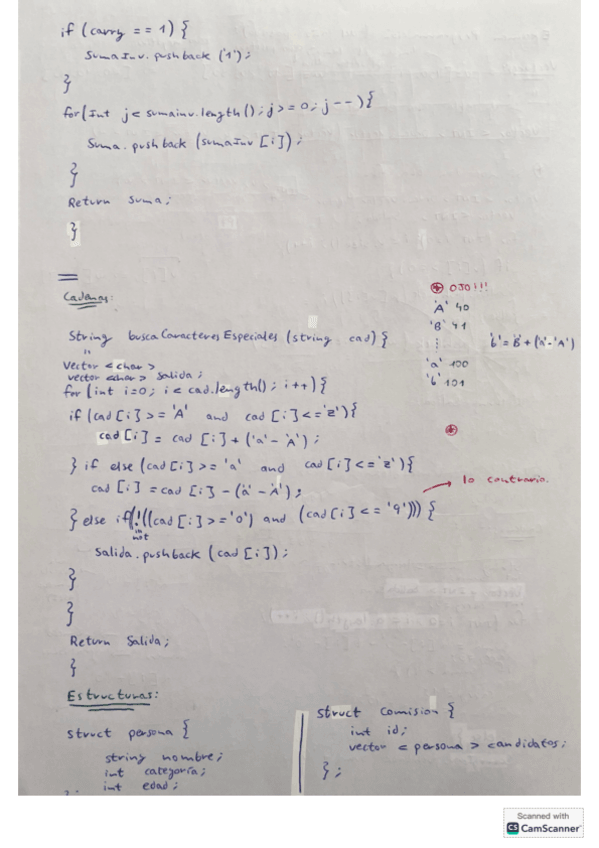 if (carry == 1) {
SumaInv. pushback ('1');
}
for (Int j = sumainv.length(); j >= 0; j--) {
Suma. pushback (sumaInv [i]);
}
Return suma;
}
Cadenas:
String buscaCaracteresEspeciales (string cad) {
"
vector <char>
vector <char> salida;
for (int i=0; i < cad.length(); i++) {
if (cad [i] >= 'A' and cad [i] <= 'z') {
cad [i] = cad [i] + ('a' - 'A');
} if else (cad [i] >= 'a' and cad [i] <= 'z') {
cad [i] = cad [i] - ('a' - 'A');
} else if (!((cad [i] >= '0') and (cad [i] <= '9'))) {
not
Salida. pushback (cad [i]);
}
}
Return Salida;
}
OJO!!!
'A' 40
'B' 41
⋮
'a' 100
'b' 101
'b' = 'B' + ('a' - 'A')
→ lo contrario.
Estructuras:
struct persona {
string nombre;
int categoría;
int edad;
};
struct Comision {
int id;
vector < persona > candidatos;
};
Scanned with
CS CamScanner